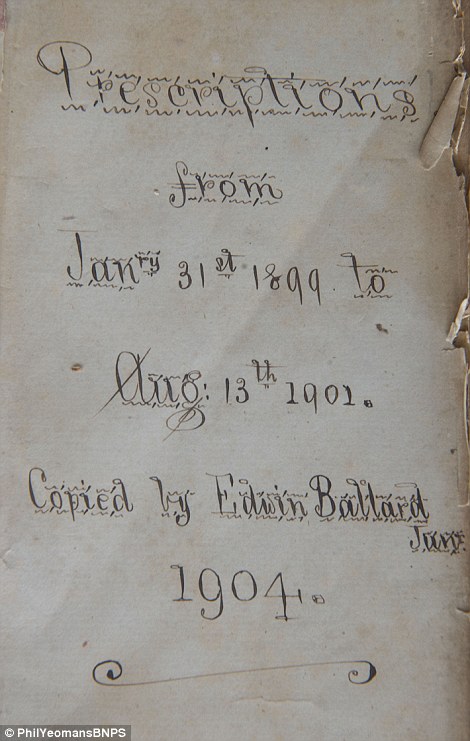 Prescriptions
from
Janry 31st 1899 to
Aug: 13th 1901.
Copied by Edwin Ballard
Junr
1904.
© PhilYeomansBNPS